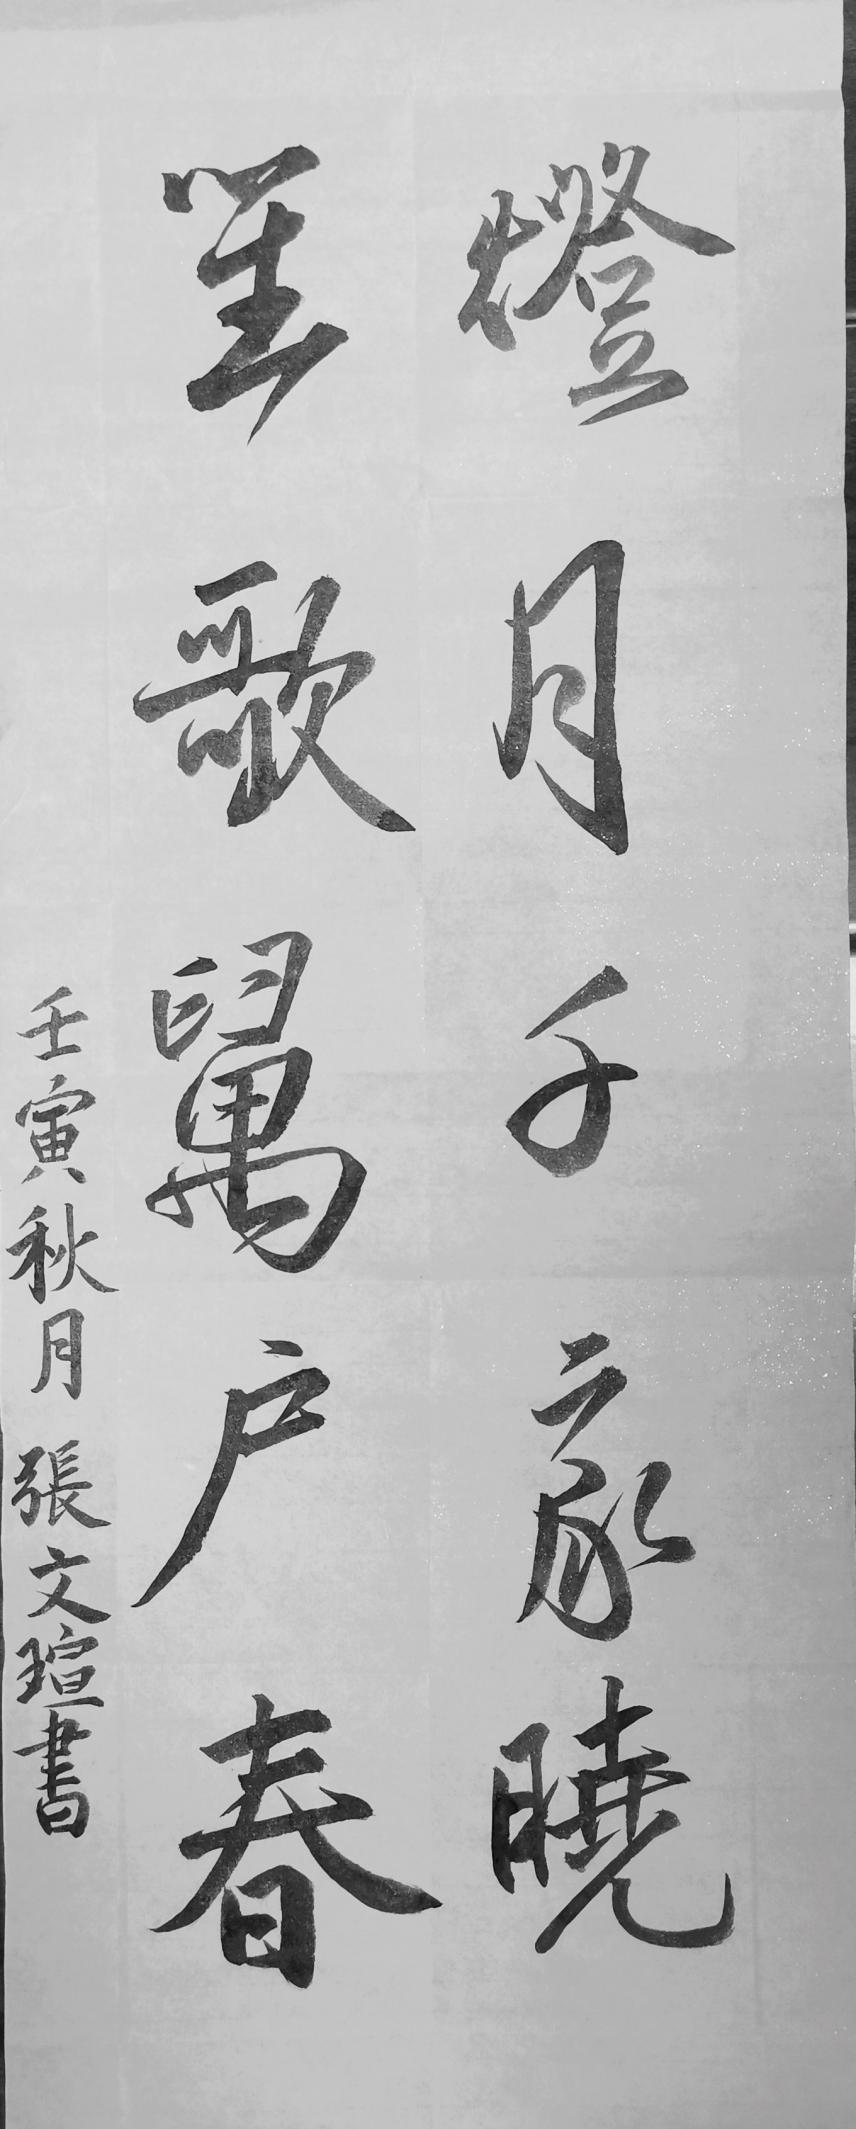 燈月千家曉
笙歌萬户春
壬寅秋月張文瑄書